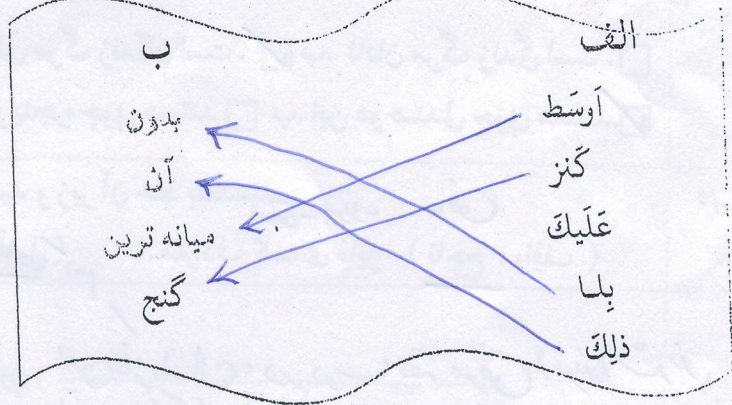 الف
اَوسَط
كَنز
عَلَيكَ
بِلـا
ذلِكَ
ب
بدون
آن
میانه ترین
گنج